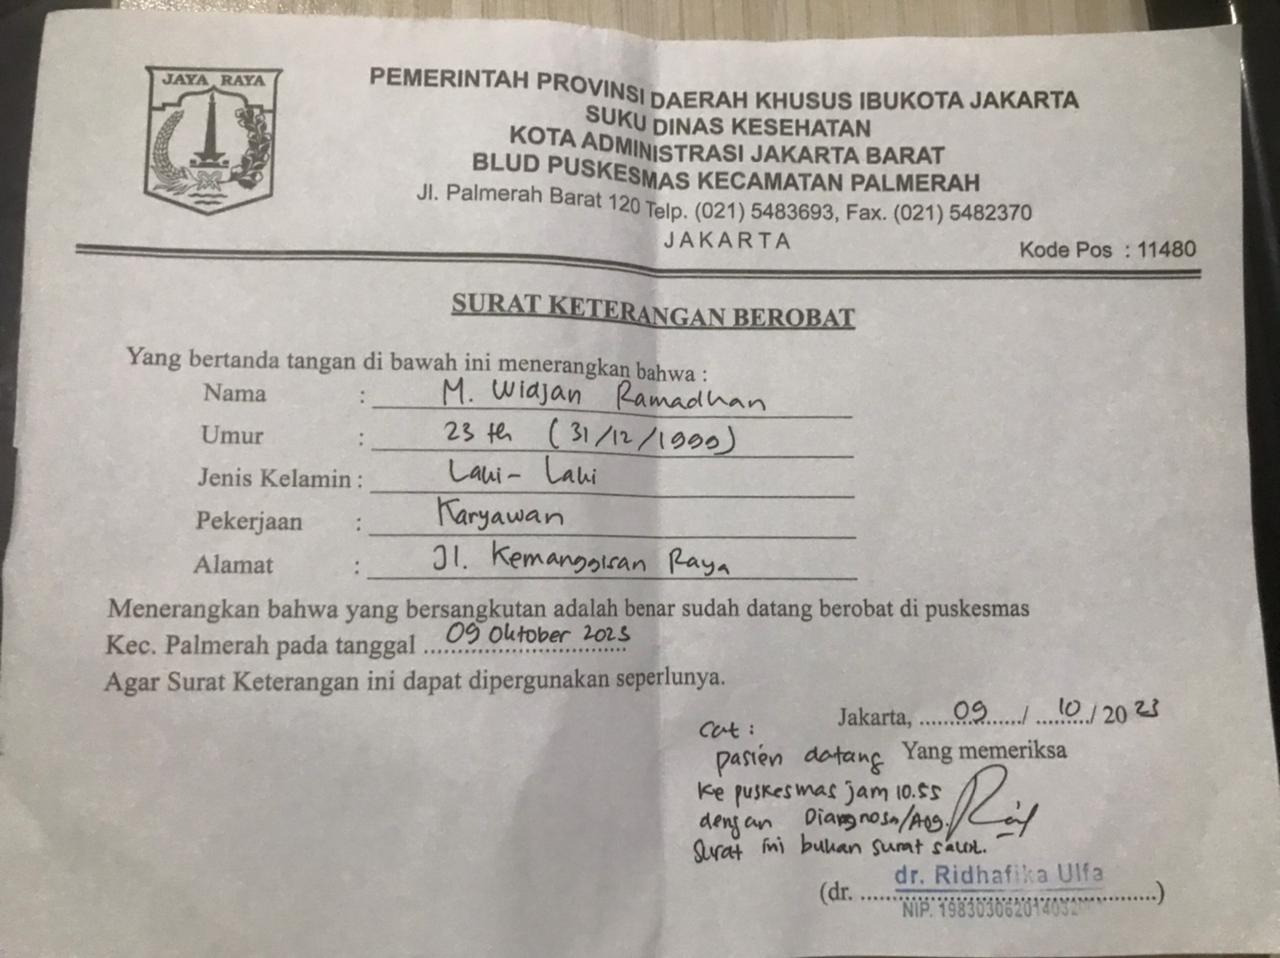 JAYA RAYA
PEMERINTAH PROVINSI DAERAH KHUSUS IBUKOTA JAKARTA
SUKU DINAS KESEHATAN
KOTA ADMINISTRASI JAKARTA BARAT
BLUD PUSKESMAS KECAMATAN PALMERAH
Jl. Palmerah Barat 120 Telp. (021) 5483693, Fax. (021) 5482370
JAKARTA
Kode Pos : 11480
SURAT KETERANGAN BEROBAT
Yang bertanda tangan di bawah ini menerangkan bahwa :
Nama : M. Widjan Ramadhan
Umur : 23 th (31/12/1999)
Jenis Kelamin : Laki-Laki
Pekerjaan : Karyawan
Alamat : Jl. Kemanggisan Raya
Menerangkan bahwa yang bersangkutan adalah benar sudah datang berobat di puskesmas
Kec. Palmerah pada tanggal 09 Oktober 2023
Agar Surat Keterangan ini dapat dipergunakan seperlunya.
Jakarta, 09 / 10 / 2023
Yang memeriksa
Cat :
pasien datang
ke puskesmas jam 10.55
dengan Diagnosa/
Surat ini bukan surat sakit.
dr. Ridhafika Ulfa
(dr. ........................)
NIP. 198303062014032